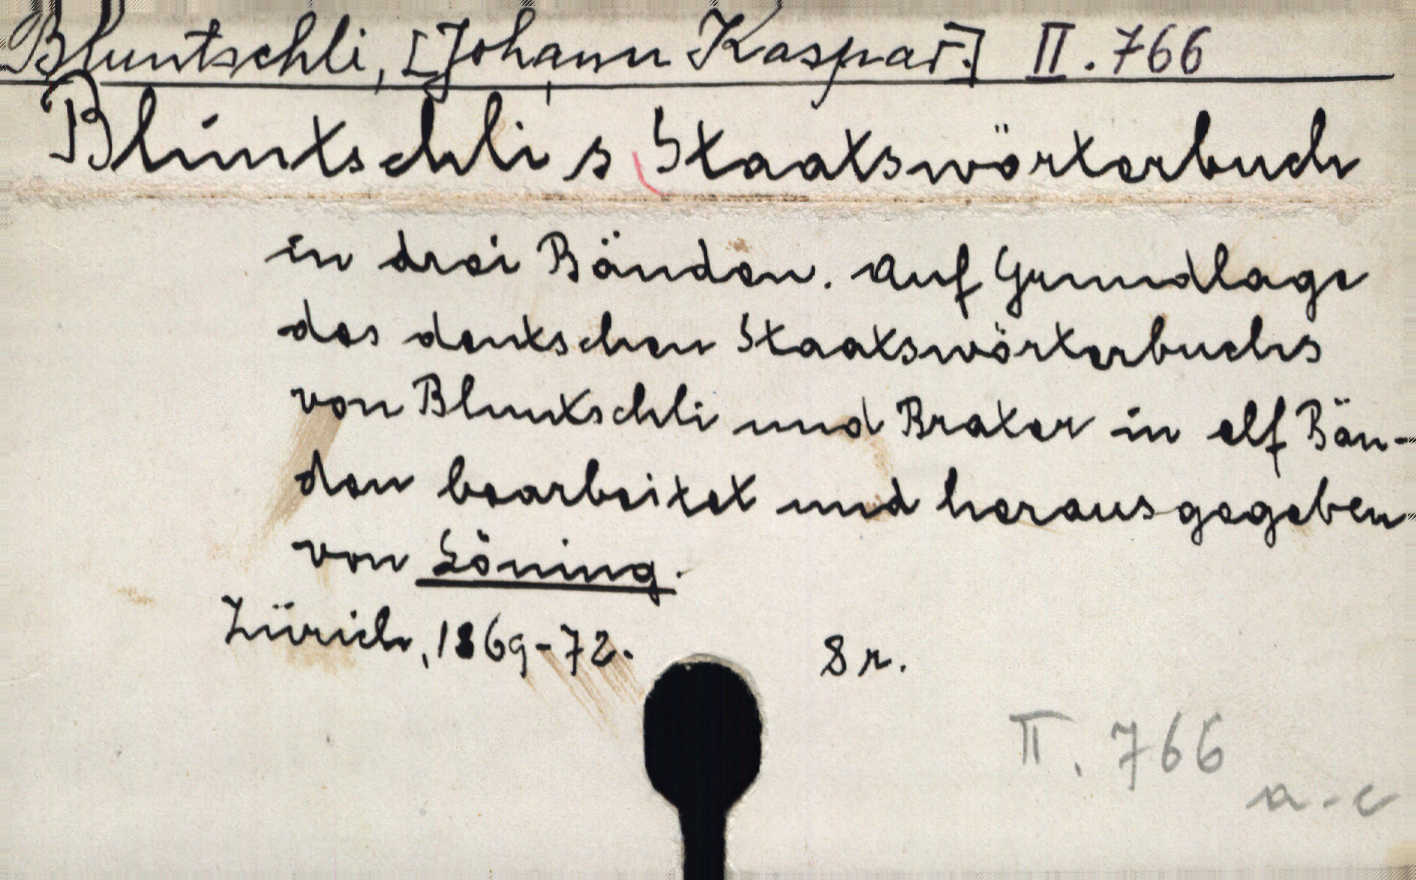 Bluntschli, [Johann Kaspar.] II. 766
Bluntschli's Staatswörterbuch
in drei Bänden. Auf Grundlage
des deutschen Staatswörterbuchs
von Bluntschli und Brater in elf Bän-
den bearbeitet und herausgegeben
von Löning.
Zürich, 1869-72. 8 r.
II. 766
a-c